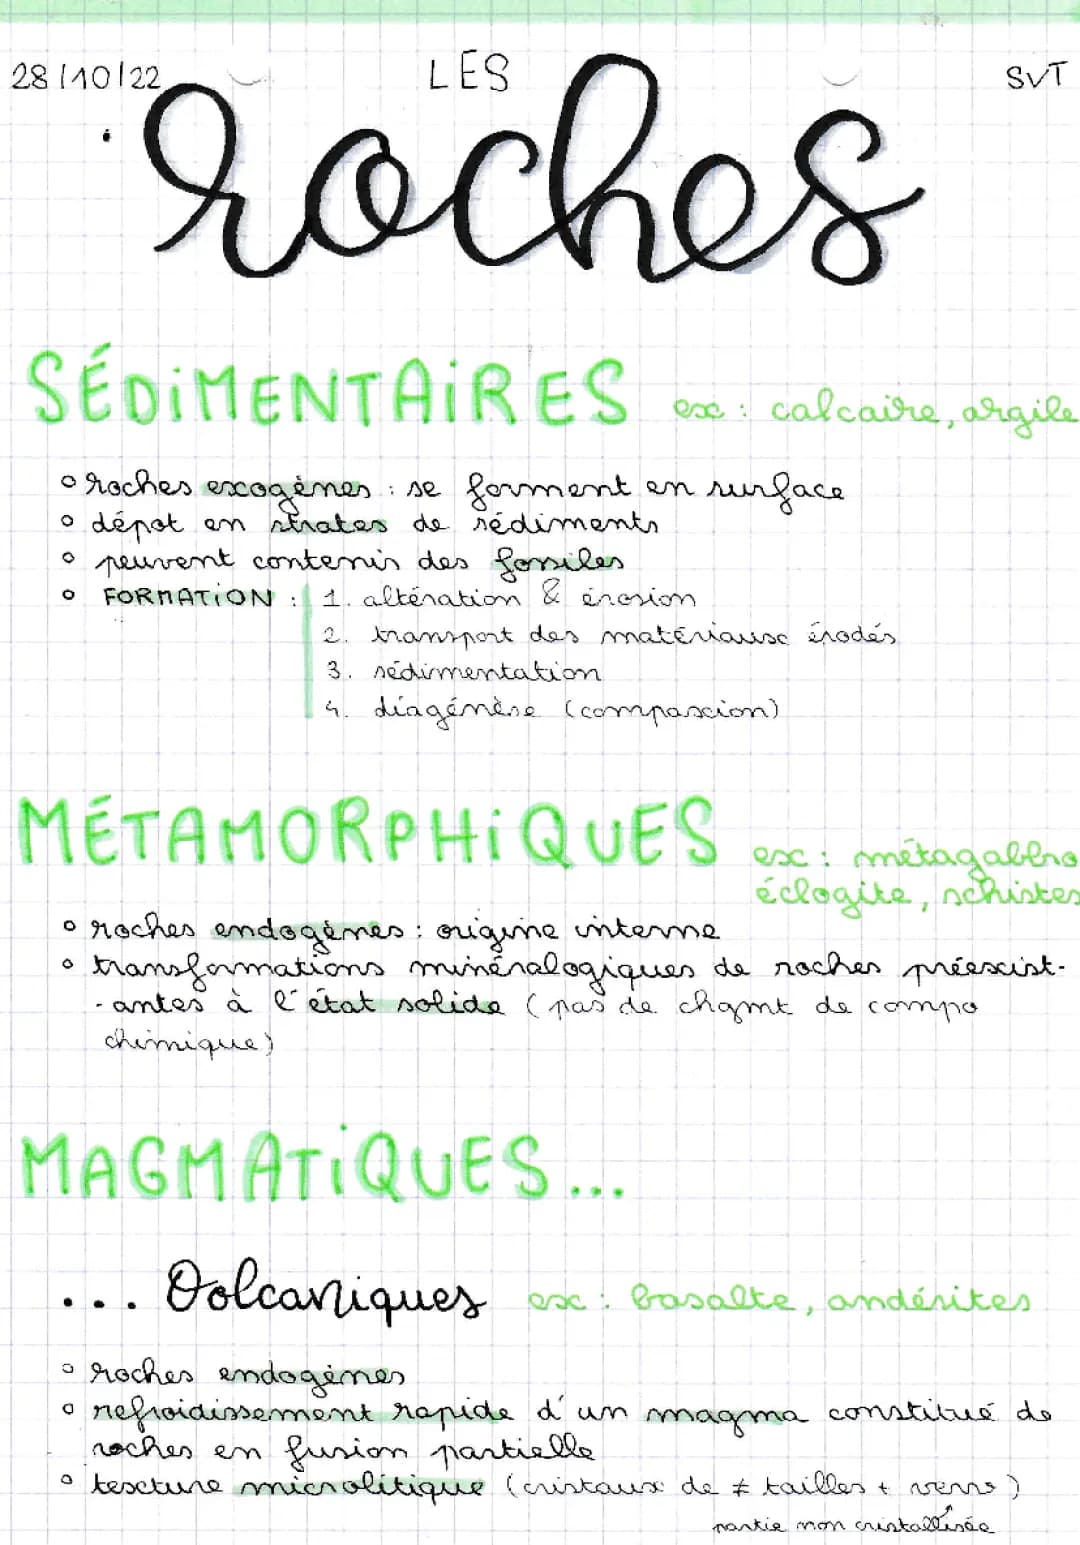 28/10/22 LES SVT
roches
SÉDIMENTAIRES ex : calcaire, argile
° roches exogènes : se forment en surface
° dépot en strates de sédiments
° peuvent contenir des fossiles
° FORMATION : 1. altération & érosion
2. transport des matériaux érodés
3. sédimentation
4. diagénèse (compaxcion)
MÉTAMORPHIQUES ex : métagabbro
éclogite, schistes
° roches endogènes : origine interne
° transformations minéralogiques de roches préexist-
-antes à l'état solide (pas de chgmt de compo
chimique)
MAGMATIQUES...
... Volcaniques ex : basalte, andésites
° roches endogènes
° refroidissement rapide d'un magma constitué de
roches en fusion partielle
° texture microlitique (cristaux de ≠ tailles + verre)
partie non cristallisée